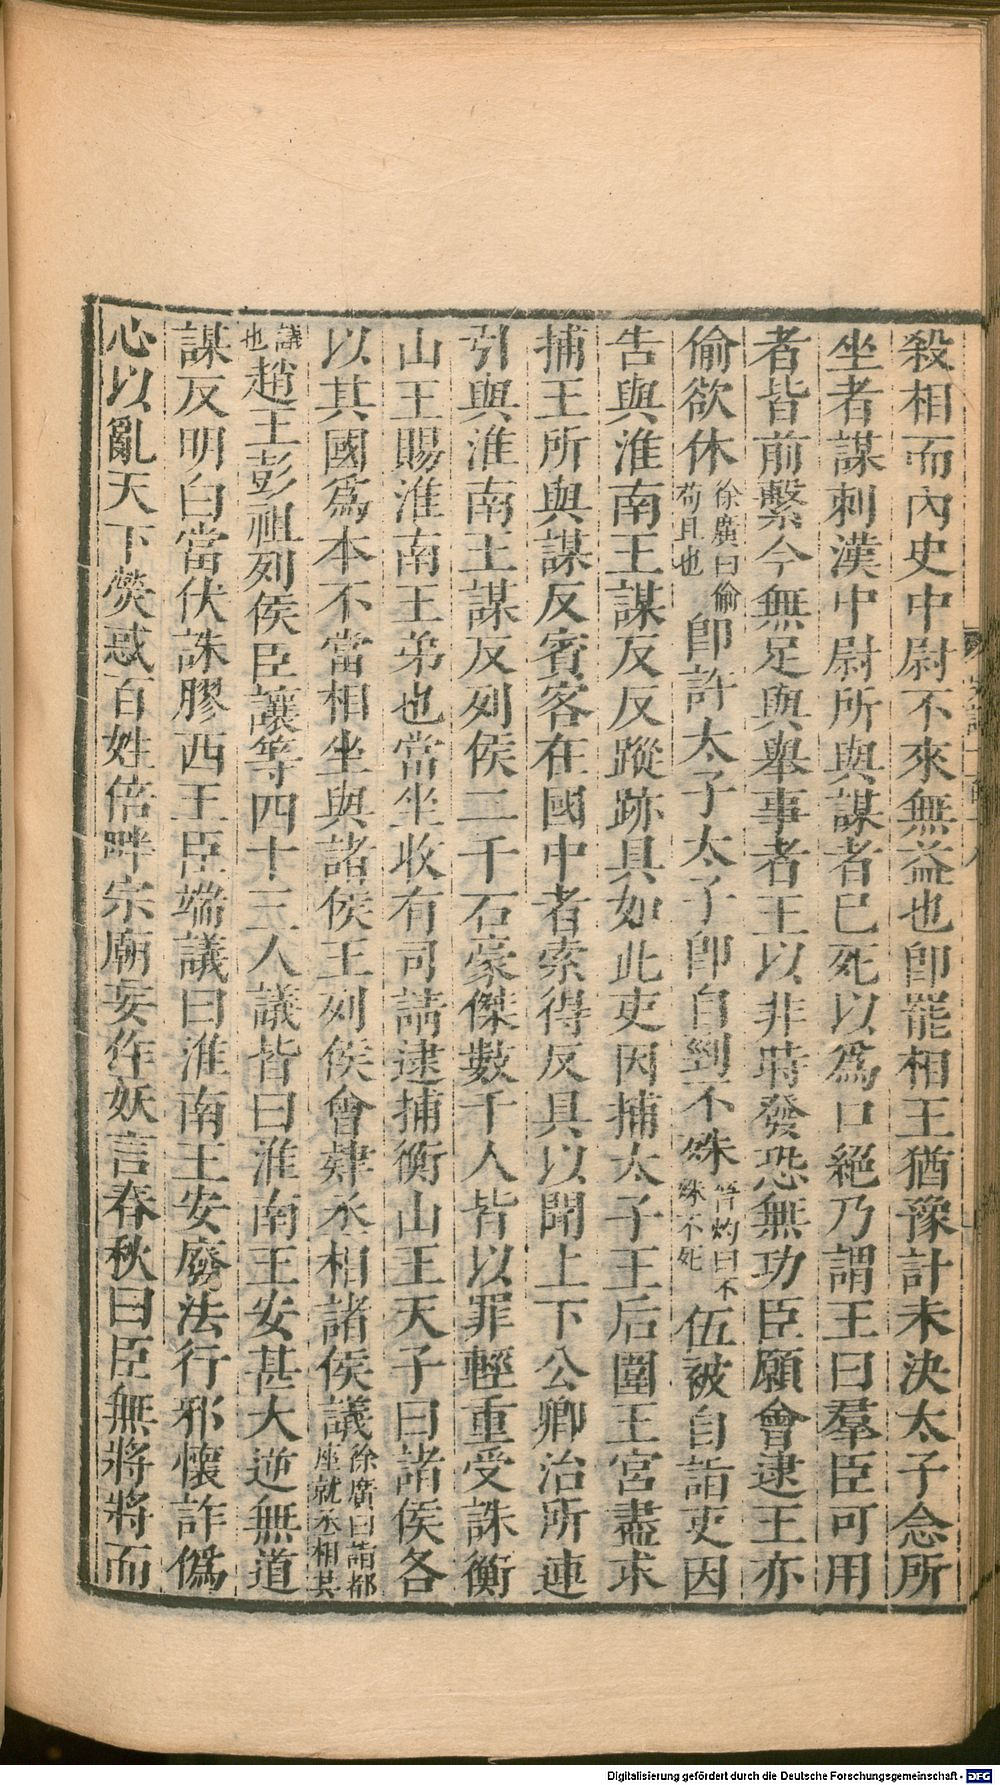 殺相而內史中尉不來無益也卽罷相王猶豫計未決太子念所
坐者謀刺漢中尉所與謀者已死以爲口絕乃謂王曰羣臣可用
者皆前繫今無足與舉事者王以非時發恐無功臣願會逮王亦
偷欲休徐廣曰偷苟且也卽許太子太子卽自剄不殊晉灼曰不殊不死伍被自詣吏因
告與淮南王謀反反蹤跡具如此吏因捕太子王后圍王宮盡求
捕王所與謀反賓客在國中者索得反具以聞上下公卿治所連
引與淮南王謀反列侯二千石豪傑數千人皆以罪輕重受誅衡
山王賜淮南王弟也當坐收有司請逮捕衡山王天子曰諸侯各
以其國爲本不當相坐與諸侯王列侯會肄丞相諸侯議徐廣曰詣都座就丞相共
議也趙王彭祖列侯臣讓等四十三人議皆曰淮南王安甚大逆無道
謀反明白當伏誅膠西王臣端議曰淮南王安廢法行邪懷詐僞
心以亂天下熒惑百姓倍畔宗廟妄作妖言春秋曰臣無將將而
Digitalisierung gefördert durch die Deutsche Forschungsgemeinschaft - DFG